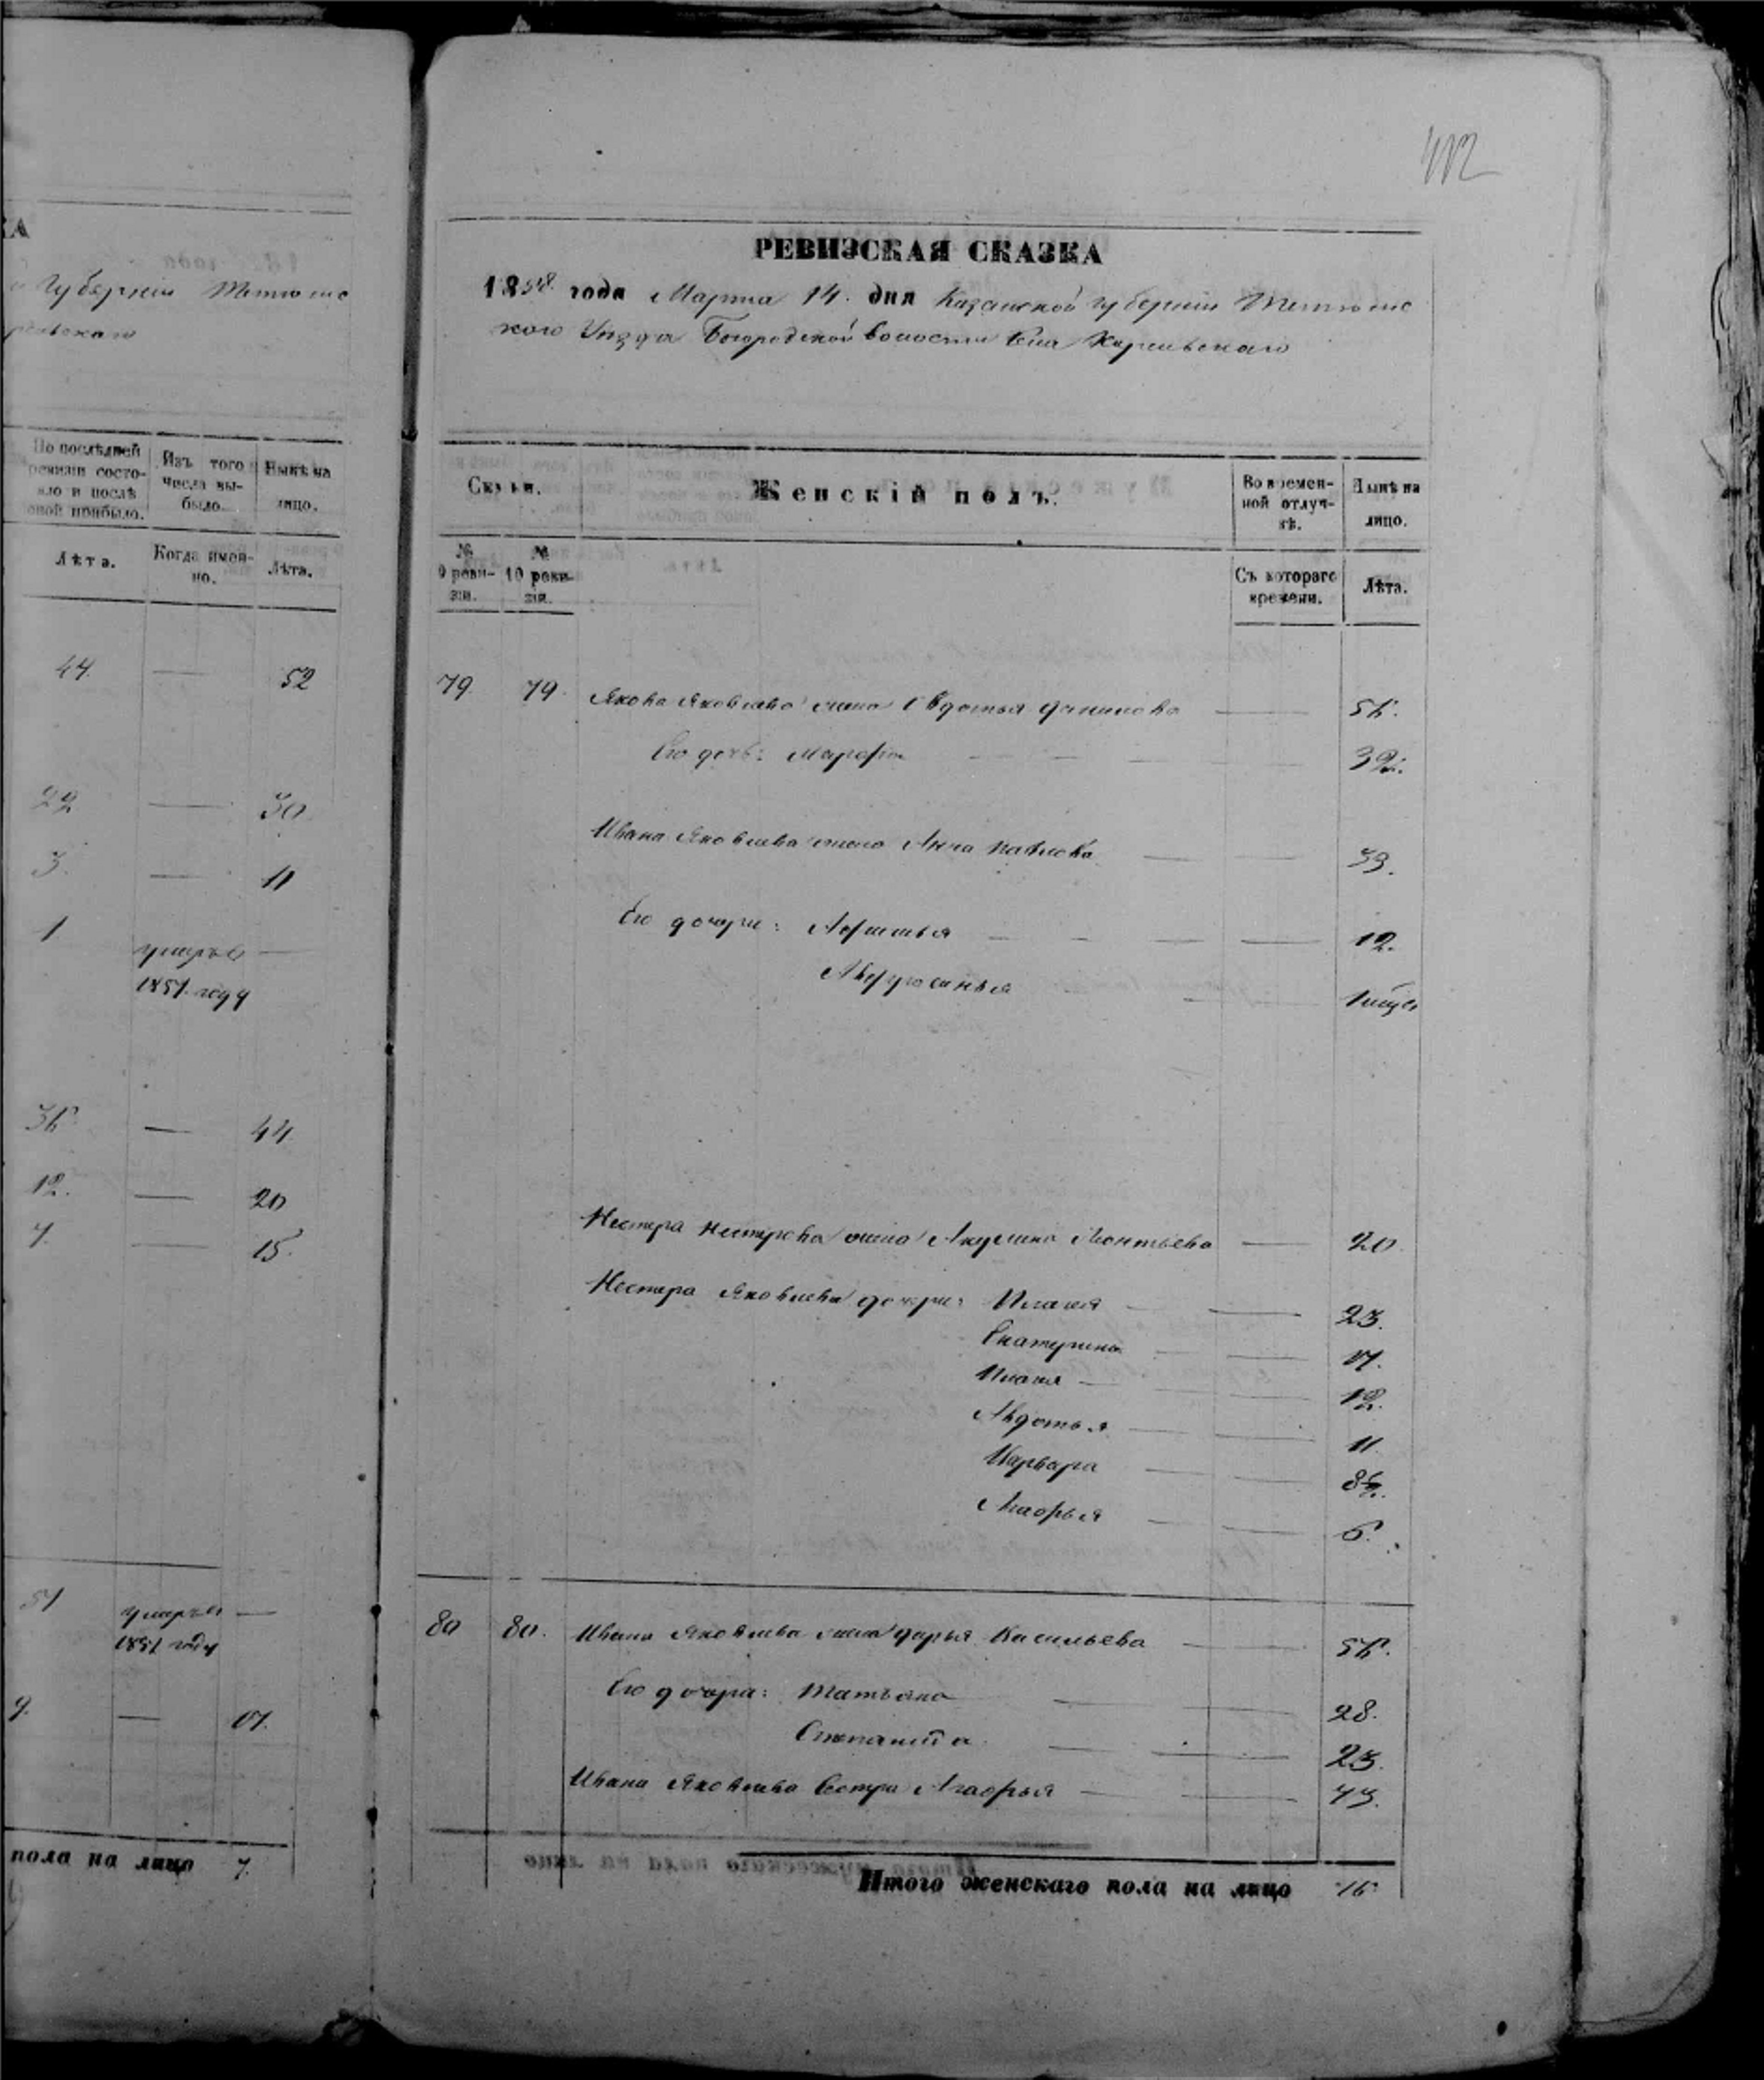 412
КА
Губерніи Тетюшс
РЕВИЗСКАЯ СКАЗКА
1858 года Марта 14 дня Казанской губерніи Тетюшс
кого Уѣзда Богородской волости Села
По послѣдней ревизіи состо-
яло и послѣ
оной прибыло.
Изъ того
числа вы-
было.
Нынѣ на
лицо.
Лѣта.
Когда имен-
но.
Лѣта.
44. — 52
22 — 30
3. — 11
1 умеръ —
1857 году
36 — 44
12. — 20
7. — 15.
51 умеръ —
1857 году
9. — 17.
пола на лицо 7.
Семьи.
Женскій полъ.
Во времен-
ной отлуч-
кѣ.
Нынѣ на
лицо.
№
9 реви-
зіи.
№
10 реви-
зіи.
Съ котораго
времени.
Лѣта.
79 79. Якова Яковлева жена Авдотья Данилова — 56.
Его дочь: Марфа — 32.
Ивана Яковлева жена Анна Павлова — 33.
Его дочери: — 12.
— 1 мѣся
Нестера Нестерова жена Акулина Леонтьева — 20.
Нестера Яковлева дочери: Пелагея — 23.
Екатерина — 17.
Пелагея — 12.
Авдотья — 11
Варвара — 8
— 6.
80 80. Ивана Яковлева жена Дарья Васильева — 56.
Его дочери: Татьяна — 28.
Степанида — 23.
Ивана Яковлева сестра Агафья — 43.
Итого женскаго пола на лицо 16